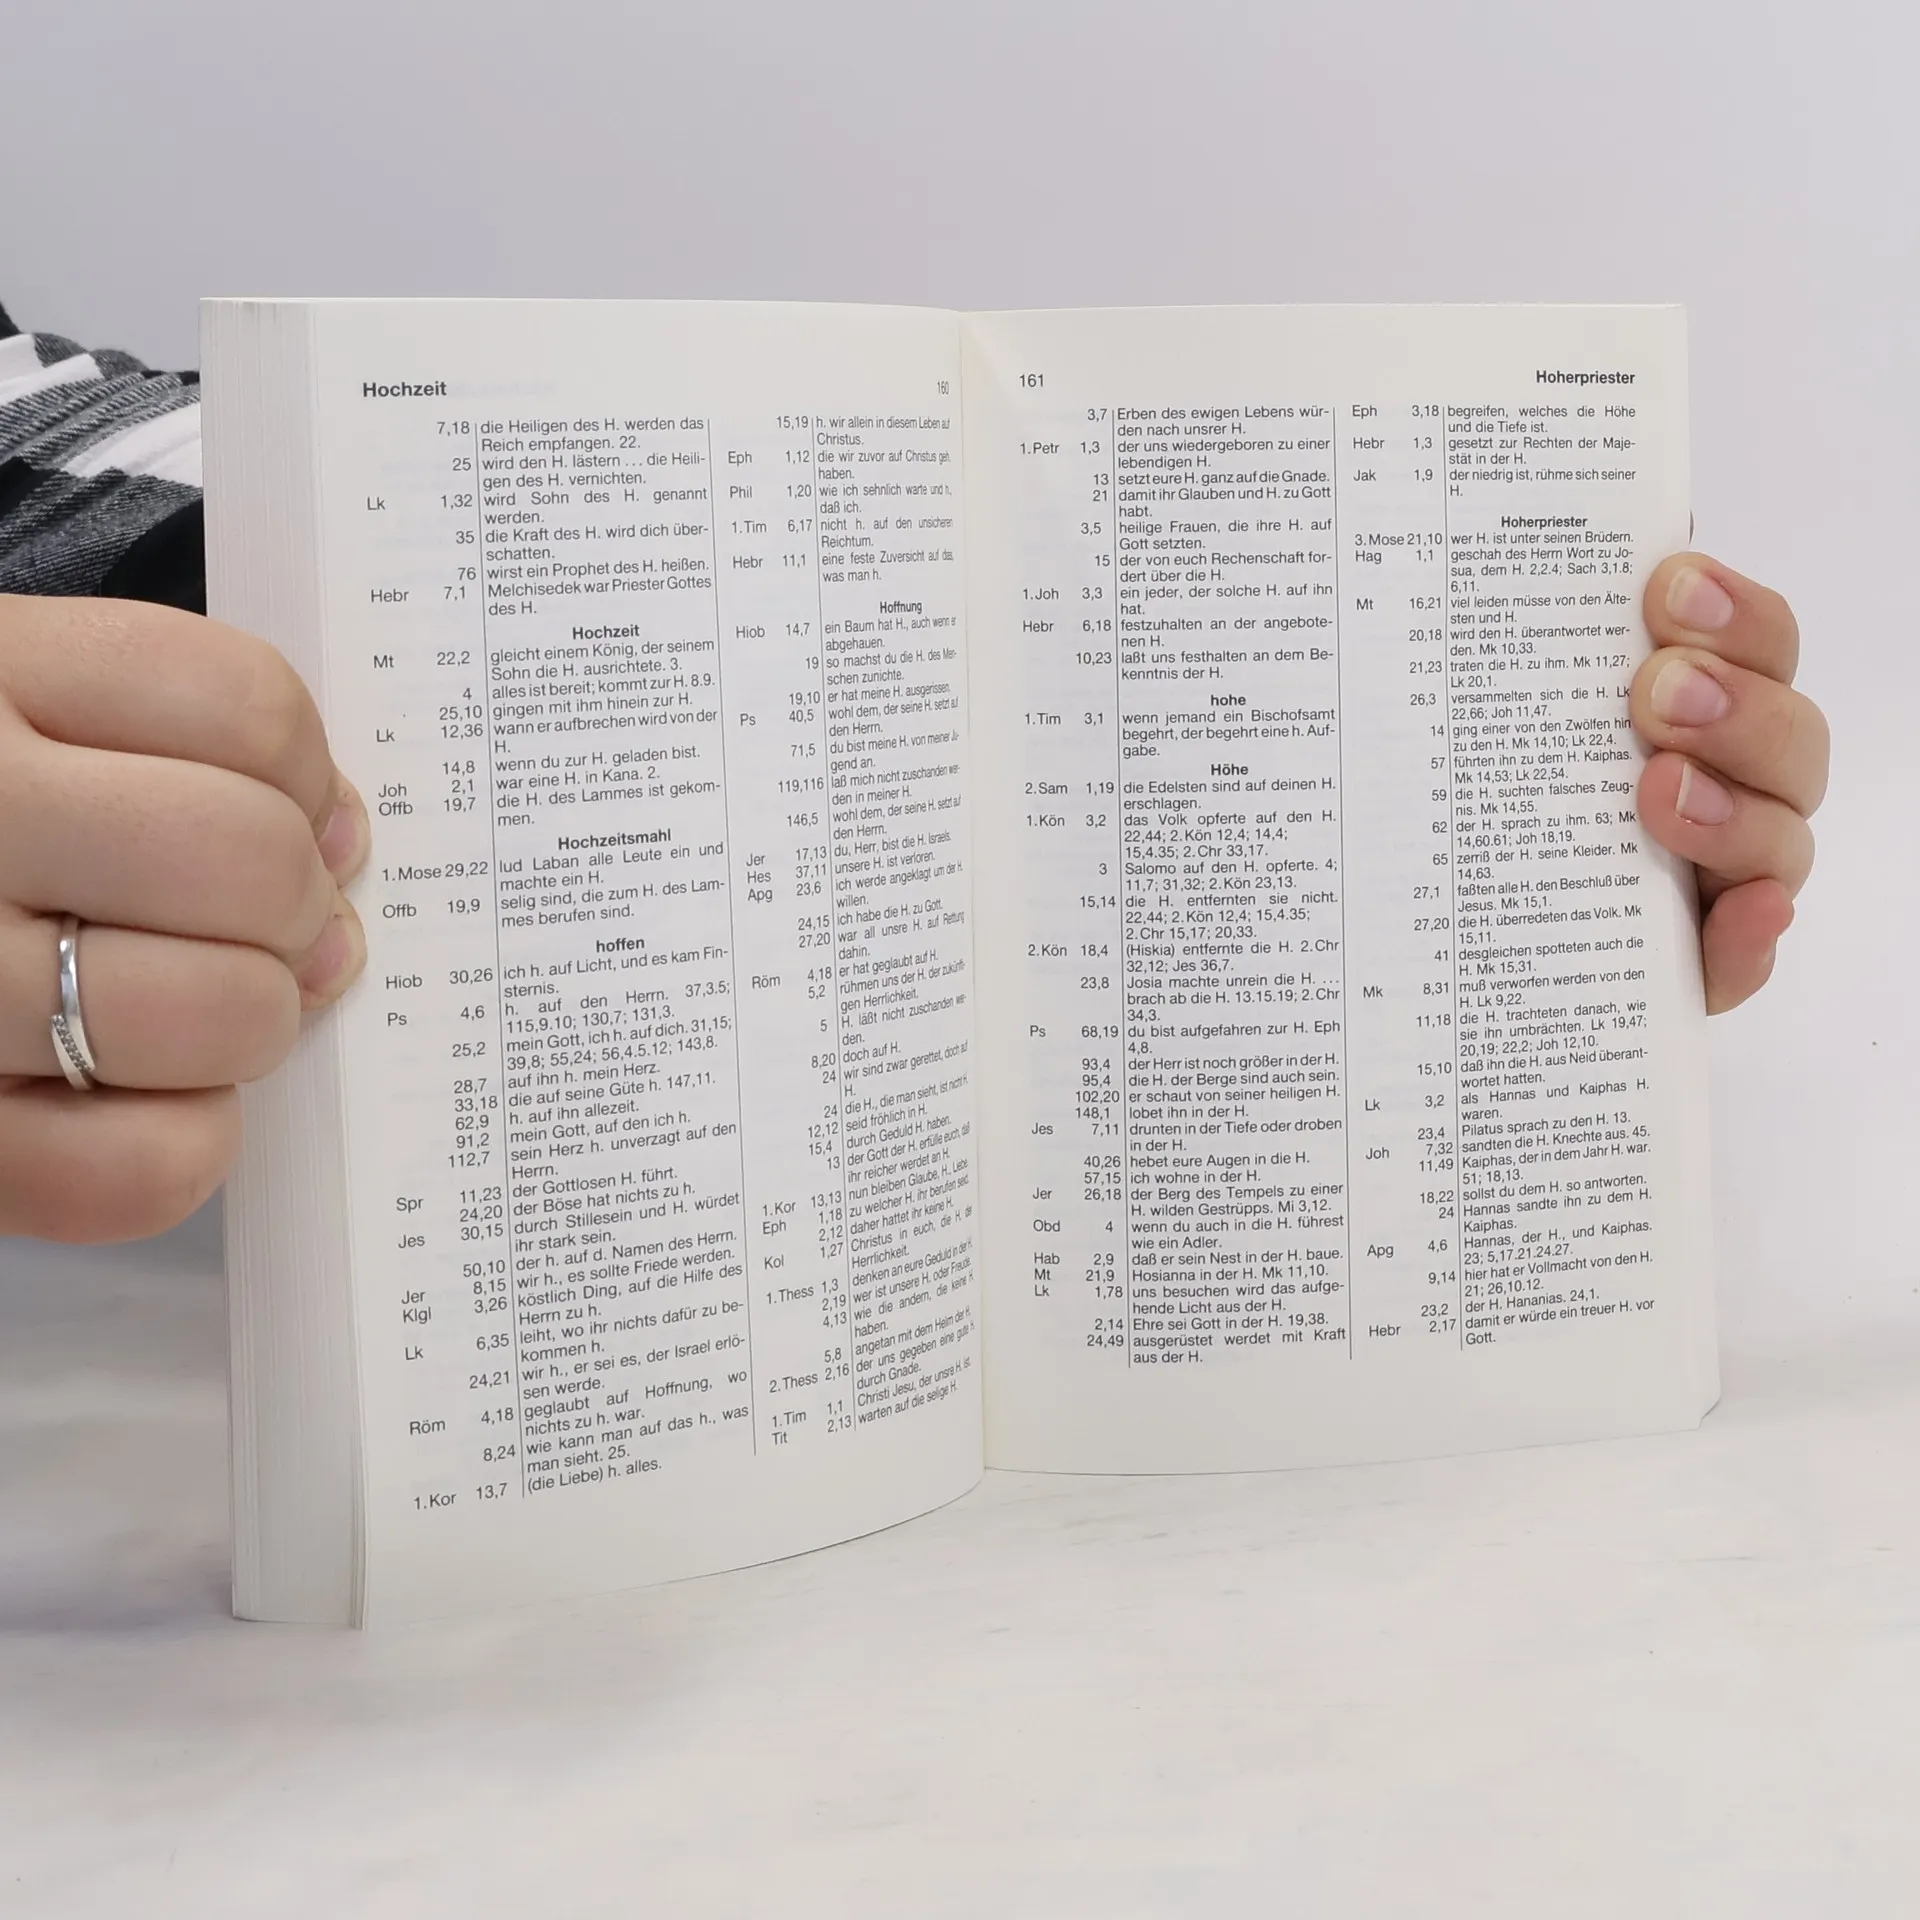 Hochzeit
160
7,18 die Heiligen des H. werden das
Reich empfangen. 22.
25 wird den H. lästern ... die Heili-
gen des H. vernichten.
Lk 1,32 wird Sohn des H. genannt
werden.
35 die Kraft des H. wird dich über-
schatten.
76 wirst ein Prophet des H. heißen.
Hebr 7,1 Melchisedek war Priester Gottes
des H.
Hochzeit
Mt 22,2 gleicht einem König, der seinem
Sohn die H. ausrichtete. 3.
4 alles ist bereit; kommt zur H. 8.9.
25,10 gingen mit ihm hinein zur H.
Lk 12,36 wann er aufbrechen wird von der
H.
14,8 wenn du zur H. geladen bist.
Joh 2,1 war eine H. in Kana. 2.
Offb 19,7 die H. des Lammes ist gekom-
men.
Hochzeitsmahl
1. Mose 29,22 lud Laban alle Leute ein und
machte ein H.
Offb 19,9 selig sind, die zum H. des Lam-
mes berufen sind.
hoffen
Hiob 30,26 ich h. auf Licht, und es kam Fin-
sternis.
Ps 4,6 h. auf den Herrn. 37,3.5;
115,9.10; 130,7; 131,3.
25,2 mein Gott, ich h. auf dich. 31,15;
39,8; 55,24; 56,4.5.12; 143,8.
28,7 auf ihn h. mein Herz.
33,18 die auf seine Güte h. 147,11.
62,9 h. auf ihn allezeit.
91,2 mein Gott, auf den ich h.
112,7 sein Herz h. unverzagt auf den
Herrn.
Spr 11,23 der Gottlosen H. führt.
24,20 der Böse hat nichts zu h.
Jes 30,15 durch Stillesein und H. würdet
ihr stark sein.
50,10 der h. auf d. Namen des Herrn.
Jer 8,15 wir h., es sollte Friede werden.
Klgl 3,26 köstlich Ding, auf die Hilfe des
Herrn zu h.
Lk 6,35 leiht, wo ihr nichts dafür zu be-
kommen h.
24,21 wir h., er sei es, der Israel erlö-
sen werde.
Röm 4,18 geglaubt auf Hoffnung, wo
nichts zu h. war.
8,24 wie kann man auf das h., was
man sieht. 25.
1. Kor 13,7 (die Liebe) h. alles.
15,19 h. wir allein in diesem Leben auf
Christus.
Eph 1,12 die wir zuvor auf Christus geh.
haben.
Phil 1,20 wie ich sehnlich warte und h.,
daß ich.
1. Tim 6,17 nicht h. auf den unsicheren
Reichtum.
Hebr 11,1 eine feste Zuversicht auf das,
was man h.
Hoffnung
Hiob 14,7 ein Baum hat H., auch wenn er
abgehauen.
19 so machst du die H. des Men-
schen zunichte.
19,10 er hat meine H. ausgerissen.
Ps 40,5 wohl dem, der seine H. setzt auf
den Herrn.
71,5 du bist meine H. von meiner Ju-
gend an.
119,116 laß mich nicht zuschanden wer-
den in meiner H.
146,5 wohl dem, der seine H. setzt auf
den Herrn.
Jer 17,13 du, Herr, bist die H. Israels.
Hes 37,11 unsere H. ist verloren.
Apg 23,6 ich werde angeklagt um der H.
willen.
24,15 ich habe die H. zu Gott.
27,20 war all unsre H. auf Rettung
dahin.
Röm 4,18 er hat geglaubt auf H.
5,2 rühmen uns der H. der zukünfti-
gen Herrlichkeit.
5 H. läßt nicht zuschanden wer-
den.
8,20 doch auf H.
24 wir sind zwar gerettet, doch auf
H.
24 die H., die man sieht, ist nicht H.
12,12 seid fröhlich in H.
15,4 durch Geduld H. haben.
13 der Gott der H. erfülle euch, daß
ihr reicher werdet an H.
1. Kor 13,13 nun bleiben Glaube, H., Liebe.
Eph 1,18 zu welcher H. ihr berufen seid.
2,12 daher hattet ihr keine H.
Kol 1,27 Christus in euch, die H. der
Herrlichkeit.
1. Thess 1,3 denken an eure Geduld in der H.
2,19 wer ist unsere H. oder Freude.
4,13 wie die andern, die keine H.
haben.
5,8 angetan mit dem Helm der H.
2. Thess 2,16 der uns gegeben eine gute H.
durch Gnade.
1. Tim 1,1 Christi Jesu, der unsre H. ist.
Tit 2,13 warten auf die selige H.
161
Hoherpriester
3,7 Erben des ewigen Lebens wür-
den nach unsrer H.
1. Petr 1,3 der uns wiedergeboren zu einer
lebendigen H.
13 setzt eure H. ganz auf die Gnade.
21 damit ihr Glauben und H. zu Gott
habt.
3,5 heilige Frauen, die ihre H. auf
Gott setzten.
15 der von euch Rechenschaft for-
dert über die H.
1. Joh 3,3 ein jeder, der solche H. auf ihn
hat.
Hebr 6,18 festzuhalten an der angebote-
nen H.
10,23 laßt uns festhalten an dem Be-
kenntnis der H.
hohe
1. Tim 3,1 wenn jemand ein Bischofsamt
begehrt, der begehrt eine h. Auf-
gabe.
Höhe
2. Sam 1,19 die Edelsten sind auf deinen H.
erschlagen.
1. Kön 3,2 das Volk opferte auf den H.
22,44; 2. Kön 12,4; 14,4;
15,4.35; 2. Chr 33,17.
3 Salomo auf den H. opferte. 4;
11,7; 31,32; 2. Kön 23,13.
15,14 die H. entfernten sie nicht.
22,44; 2. Kön 12,4; 15,4.35;
2. Chr 15,17; 20,33.
2. Kön 18,4 (Hiskia) entfernte die H. 2. Chr
32,12; Jes 36,7.
23,8 Josia machte unrein die H. ...
brach ab die H. 13.15.19; 2. Chr
34,3.
Ps 68,19 du bist aufgefahren zur H. Eph
4,8.
93,4 der Herr ist noch größer in der H.
95,4 die H. der Berge sind auch sein.
102,20 er schaut von seiner heiligen H.
148,1 lobet ihn in der H.
Jes 7,11 drunten in der Tiefe oder droben
in der H.
40,26 hebet eure Augen in die H.
57,15 ich wohne in der H.
Jer 26,18 der Berg des Tempels zu einer
H. wilden Gestrüpps. Mi 3,12.
Obd 4 wenn du auch in die H. führest
wie ein Adler.
Hab 2,9 daß er sein Nest in der H. baue.
Mt 21,9 Hosianna in der H. Mk 11,10.
Lk 1,78 uns besuchen wird das aufge-
hende Licht aus der H.
2,14 Ehre sei Gott in der H. 19,38.
24,49 ausgerüstet werdet mit Kraft
aus der H.
Eph 3,18 begreifen, welches die Höhe
und die Tiefe ist.
Hebr 1,3 gesetzt zur Rechten der Maje-
stät in der H.
Jak 1,9 der niedrig ist, rühme sich seiner
H.
Hoherpriester
3. Mose 21,10 wer H. ist unter seinen Brüdern.
Hag 1,1 geschah des Herrn Wort zu Jo-
sua, dem H. 2,2.4; Sach 3,1.8;
6,11.
Mt 16,21 viel leiden müsse von den Älte-
sten und H.
20,18 wird den H. überantwortet wer-
den. Mk 10,33.
21,23 traten die H. zu ihm. Mk 11,27;
Lk 20,1.
26,3 versammelten sich die H. Lk
22,66; Joh 11,47.
14 ging einer von den Zwölfen hin
zu den H. Mk 14,10; Lk 22,4.
57 führten ihn zu dem H. Kaiphas.
Mk 14,53; Lk 22,54.
59 die H. suchten falsches Zeug-
nis. Mk 14,55.
62 der H. sprach zu ihm. 63; Mk
14,60.61; Joh 18,19.
65 zerriß der H. seine Kleider. Mk
14,63.
27,1 faßten alle H. den Beschluß über
Jesus. Mk 15,1.
27,20 die H. überredeten das Volk. Mk
15,11.
41 desgleichen spotteten auch die
H. Mk 15,31.
Mk 8,31 muß verworfen werden von den
H. Lk 9,22.
11,18 die H. trachteten danach, wie
sie ihn umbrächten. Lk 19,47;
20,19; 22,2; Joh 12,10.
15,10 daß ihn die H. aus Neid überant-
wortet hatten.
Lk 3,2 als Hannas und Kaiphas H.
waren.
23,4 Pilatus sprach zu den H. 13.
Joh 7,32 sandten die H. Knechte aus. 45.
11,49 Kaiphas, der in dem Jahr H. war.
51; 18,13.
18,22 sollst du dem H. so antworten.
24 Hannas sandte ihn zu dem H.
Kaiphas.
Apg 4,6 Hannas, der H., und Kaiphas.
23; 5,17.21.24.27.
9,14 hier hat er Vollmacht von den H.
21; 26,10.12.
23,2 der H. Hananias. 24,1.
Hebr 2,17 damit er würde ein treuer H. vor
Gott.